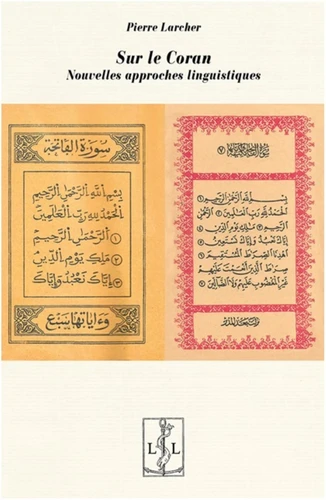 Pierre Larcher
Sur le Coran
Nouvelles approches linguistiques
سورة الفاتحة
بسم الله الرحمٰن الرحيم
الحمد لله رب العالمين
۱ الرحمٰن الرحيم
۲ ملك يوم الدين
۳ إياك نعبد وإياك
وءاياتها سبع
بسم الله الرحمٰن الرحيم
الحمد لله رب العالمين الرحمٰن
الرحيم ملك يوم الدين
إياك نعبد وإياك نستعين
اهدنا الصراط المستقيم
صراط الذين أنعمت عليهم
غير المغضوب عليهم ولا الضالين
L L